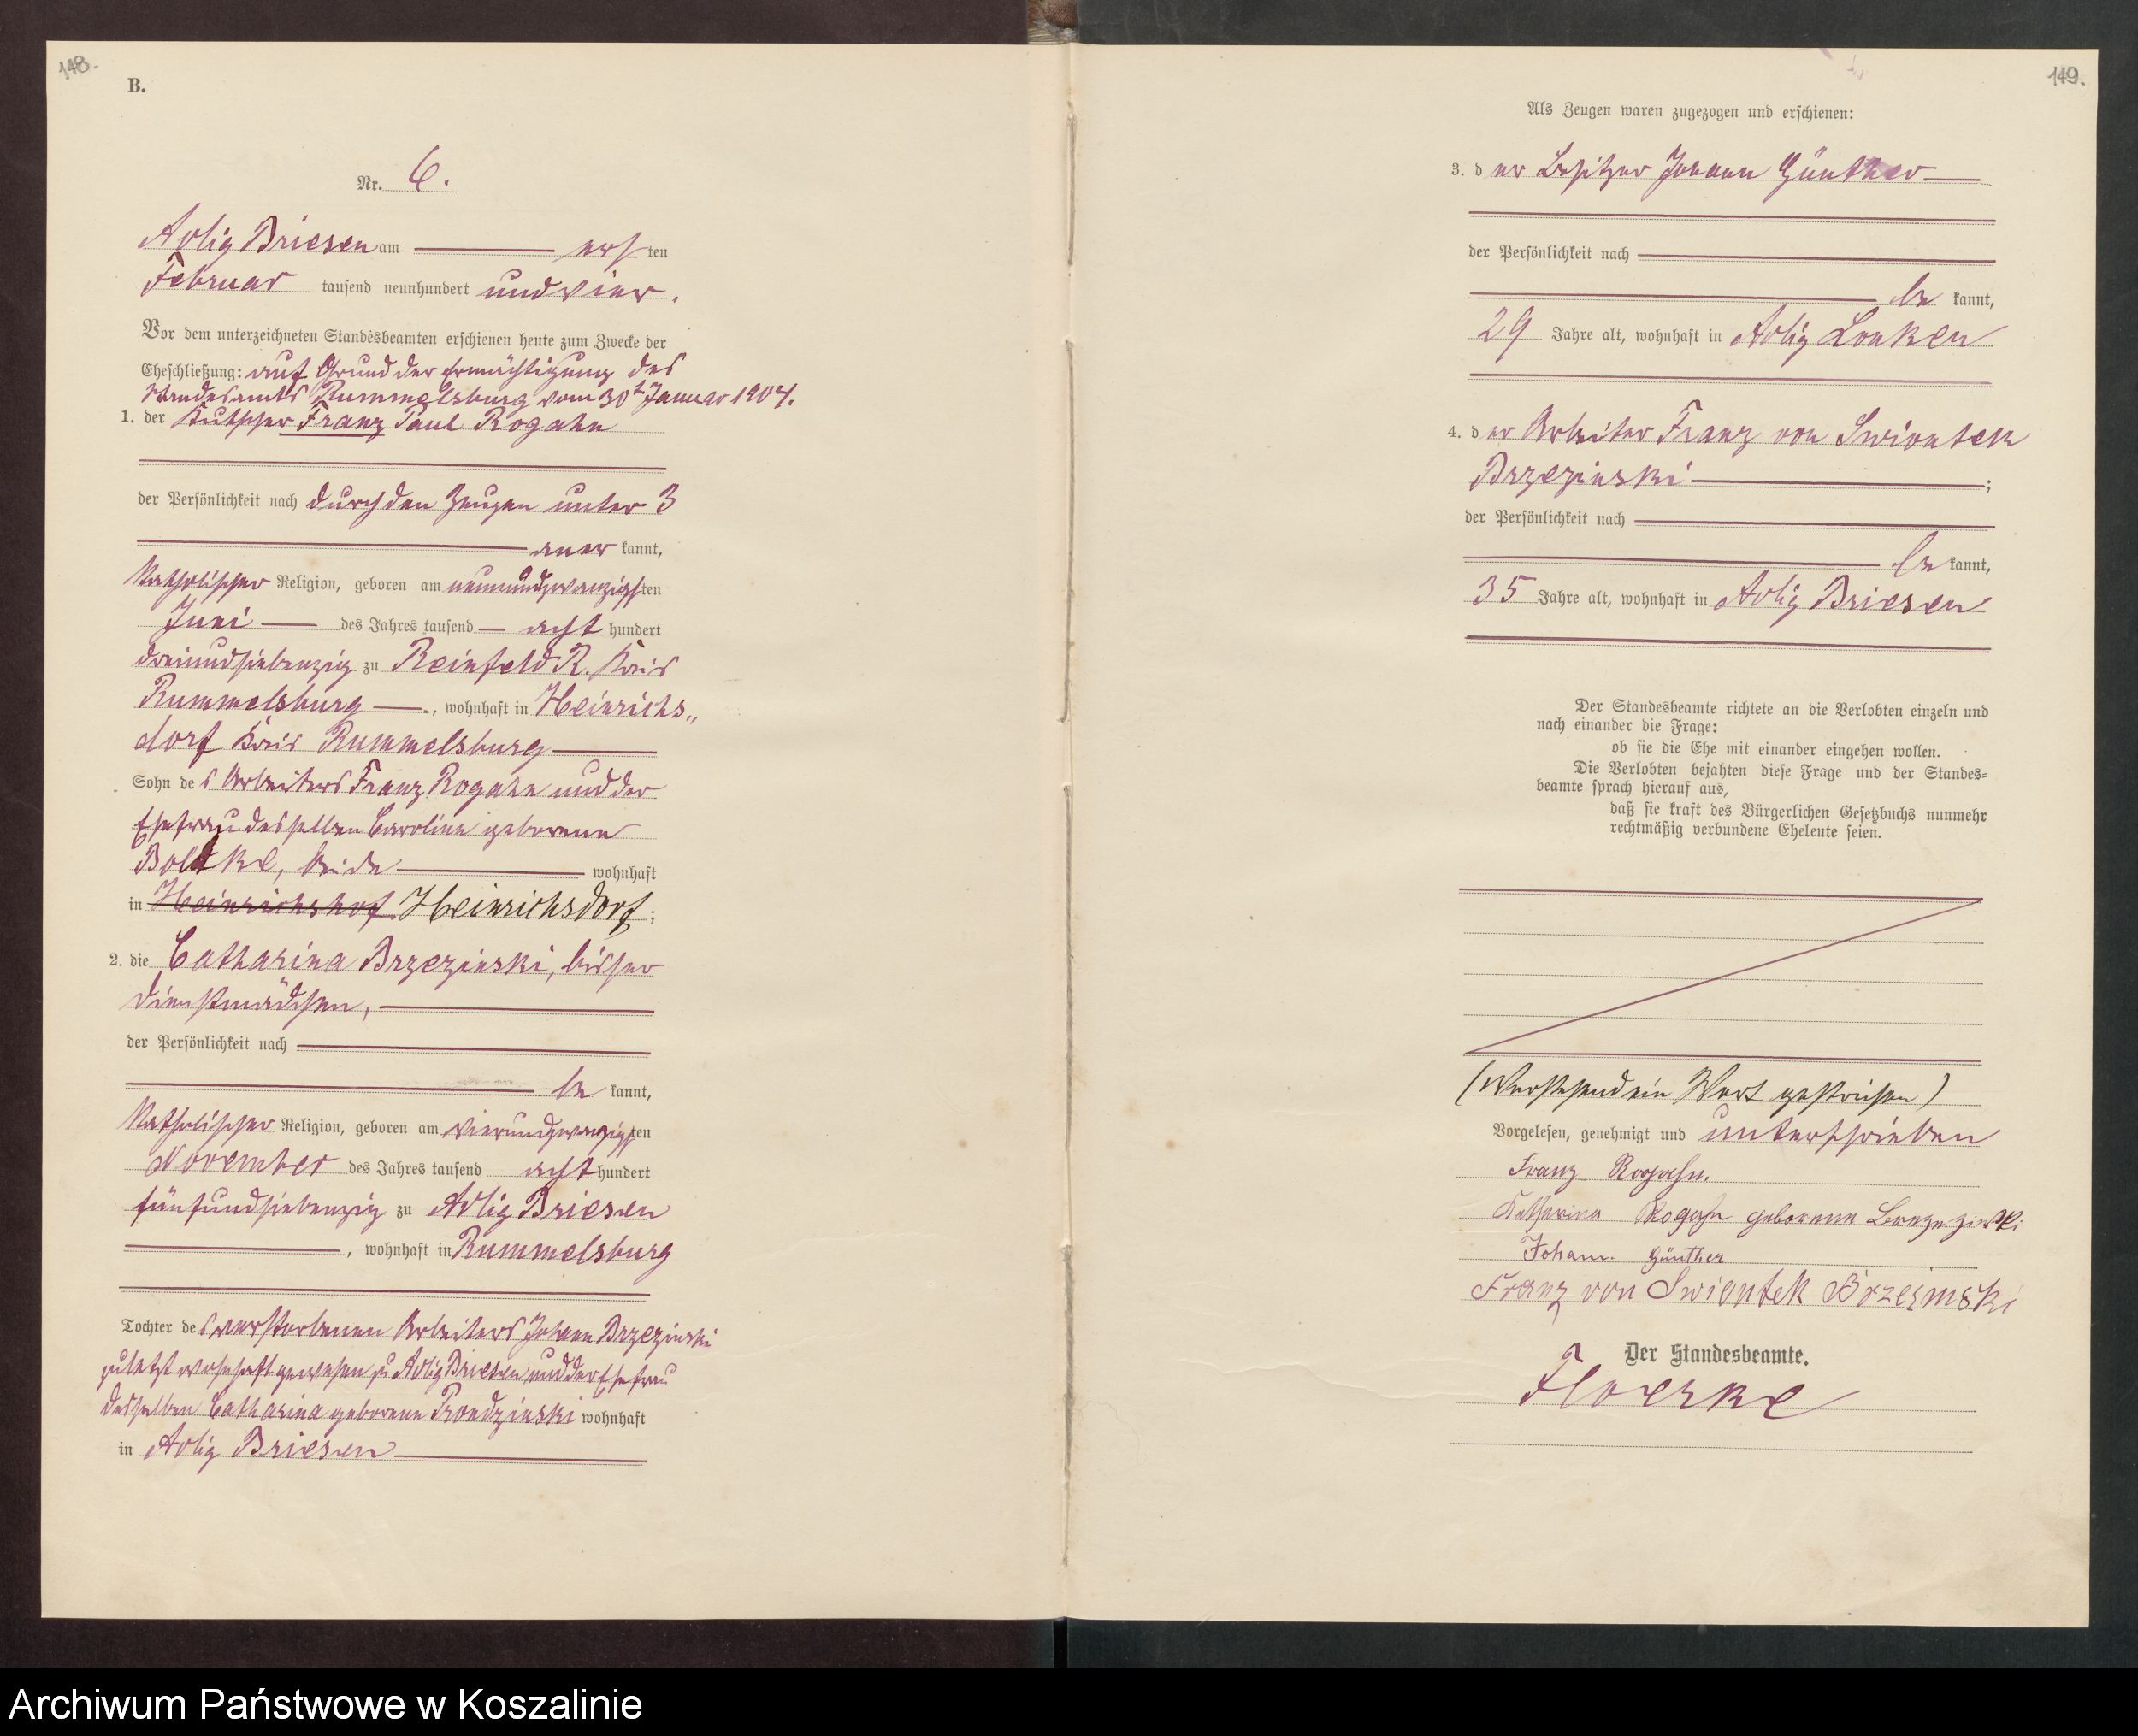 148.
B.
Nr. 6.
Adlig Briesen am ersten
Februar tausend neunhundert und vier.
Vor dem unterzeichneten Standesbeamten erschienen heute zum Zwecke der
Eheschließung: auf Grund der Ermächtigung des
Standesamts Rummelsburg vom 30t Januar 1904.
1. der Kutscher Franz Paul Rogahn
der Persönlichkeit nach durch den Zeugen unter 3
aner kannt,
katholischer Religion, geboren am neunundzwanzigsten
Juni des Jahres tausend acht hundert
dreiundsiebenzig zu Reinfeld R. Kreis
Rummelsburg, wohnhaft in Heinrichs„
dorf Kreis Rummelsburg
Sohn des Arbeiters Franz Rogahn und der
Ehefrau desselben Caroline geborenen
Boldtke, beide wohnhaft
in Heinrichshof Heinrichsdorf;
2. die Catharina Brzezinski, bisher
Dienstmädchen,
der Persönlichkeit nach
be kannt,
katholischer Religion, geboren am vierundzwanzigsten
November des Jahres tausend acht hundert
fünfundsiebenzig zu Adlig Briesen
, wohnhaft in Rummelsburg
Tochter des verstorbenen Arbeiters Johann Brzezinski
zuletzt wohnhaft gewesen zu Adlig Briesen und der Ehefrau
desselben Catharina geborenen Prondzinski wohnhaft
in Adlig Briesen
149.
Als Zeugen waren zugezogen und erschienen:
3. der Besitzer Johann Günther
der Persönlichkeit nach
be kannt,
29 Jahre alt, wohnhaft in Adlig Lonken
4. der Arbeiter Franz von Swiontek
Brzezinski;
der Persönlichkeit nach
be kannt,
35 Jahre alt, wohnhaft in Adlig Briesen
Der Standesbeamte richtete an die Verlobten einzeln und
nach einander die Frage:
ob sie die Ehe mit einander eingehen wollen.
Die Verlobten bejahten diese Frage und der Standes=
beamte sprach hierauf aus,
daß sie kraft des Bürgerlichen Gesetzbuchs nunmehr
rechtmäßig verbundene Eheleute seien.
(Vorstehend ein Wort gestrichen)
Vorgelesen, genehmigt und unterschrieben
Franz Rogahn.
Katharina Rogahn geborenne
Johann Günther
Franz von Swiontek Brzezinski
Der Standesbeamte.
Floerke
Archiwum Państwowe w Koszalinie